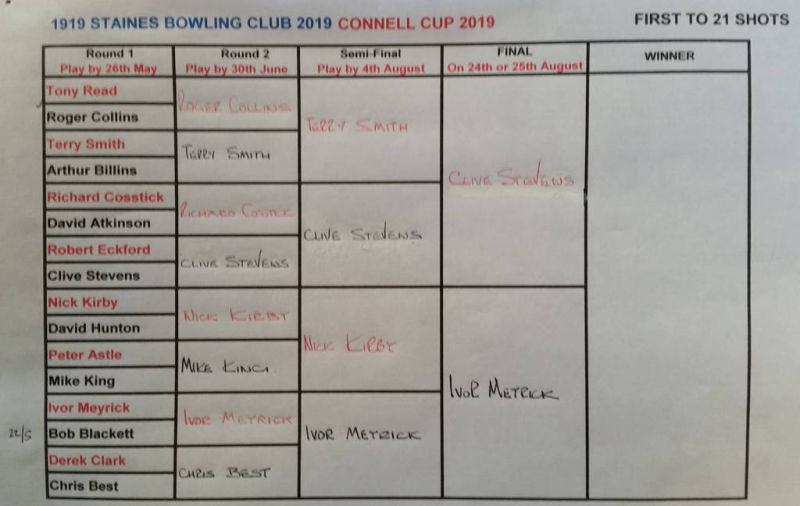 1919 STAINES BOWLING CLUB 2019 CONNELL CUP 2019
FIRST TO 21 SHOTS
Round 1
Play by 26th May
Round 2
Play by 30th June
Semi-Final
Play by 4th August
FINAL
On 24th or 25th August
WINNER
Tony Read
Roger Collins
Terry Smith
Arthur Billins
Richard Cosstick
David Atkinson
Robert Eckford
Clive Stevens
Nick Kirby
David Hunton
Peter Astle
Mike King
Ivor Meyrick
22/5
Bob Blackett
Derek Clark
Chris Best
ROGER COLLINS
TERRY SMITH
RICHARD
CLIVE STEVENS
NICK KIRBY
MIKE KING
IVOR MEYRICK
CHRIS BEST
TERRY SMITH
CLIVE STEVENS
NICK KIRBY
IVOR MEYRICK
CLIVE STEVENS
IVOR MEYRICK